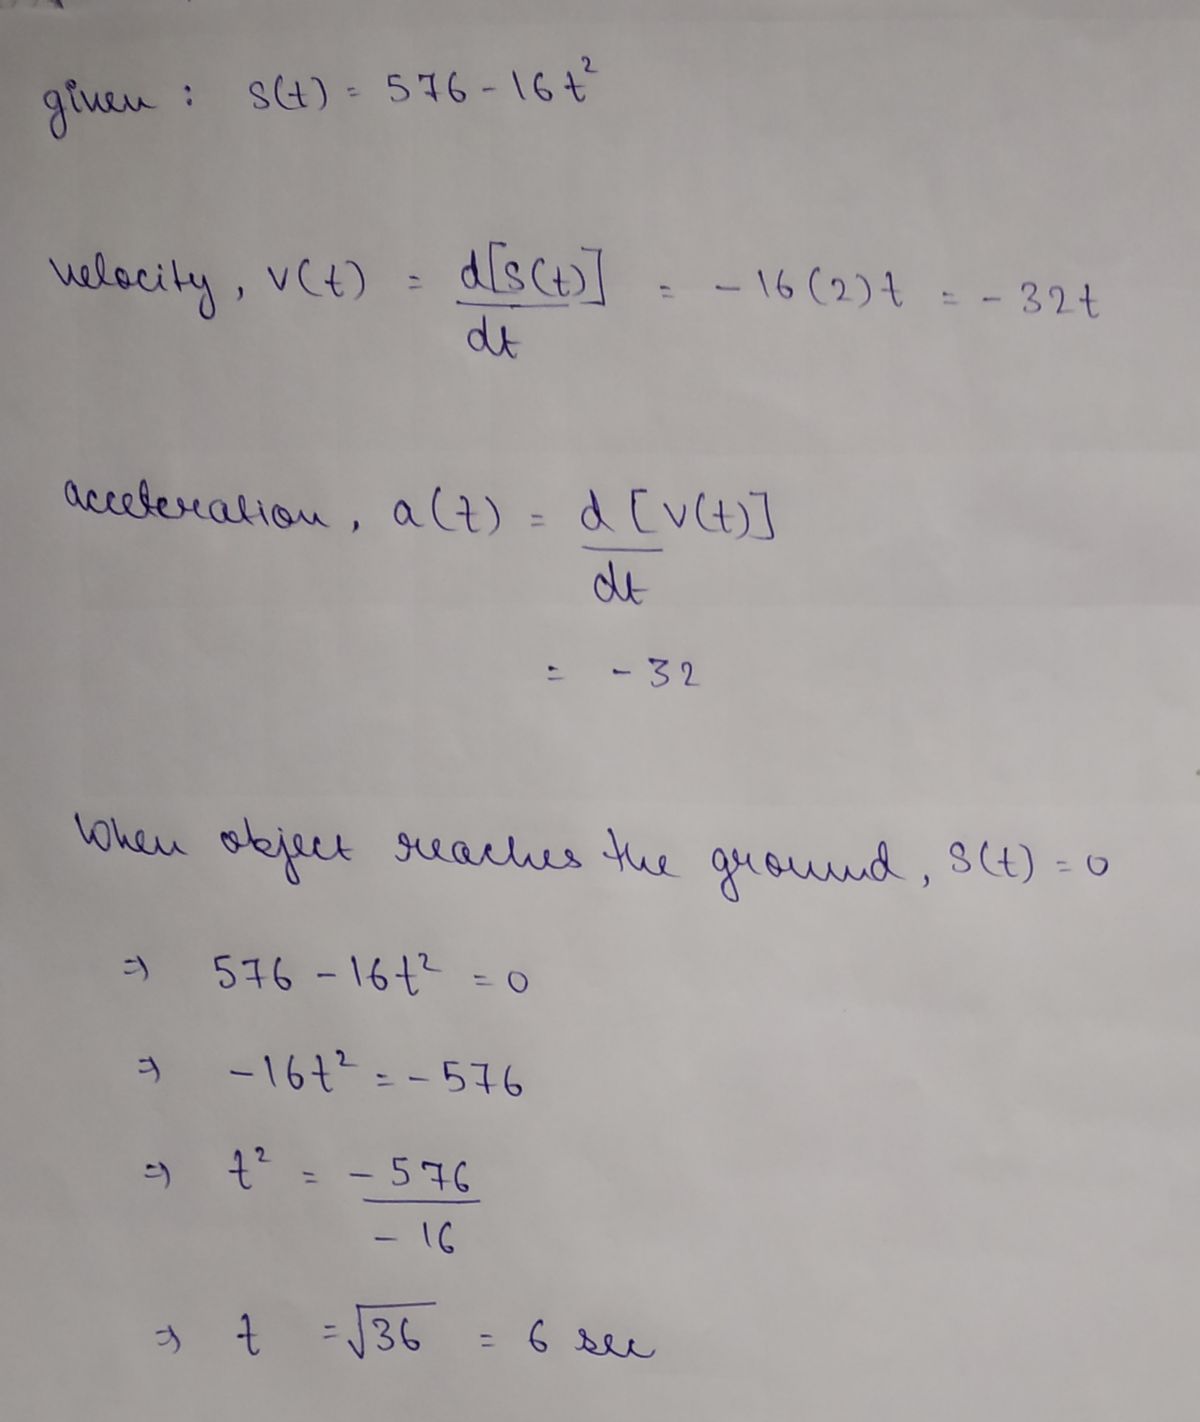 given : s(t) = 576 - 16t²
velocity, v(t) = d[s(t)]/dt = -16(2)t = -32t
acceleration, a(t) = d[v(t)]/dt
= -32
When object reaches the ground, s(t) = 0
⇒ 576 - 16t² = 0
⇒ -16t² = -576
⇒ t² = -576/-16
⇒ t = √36 = 6 sec